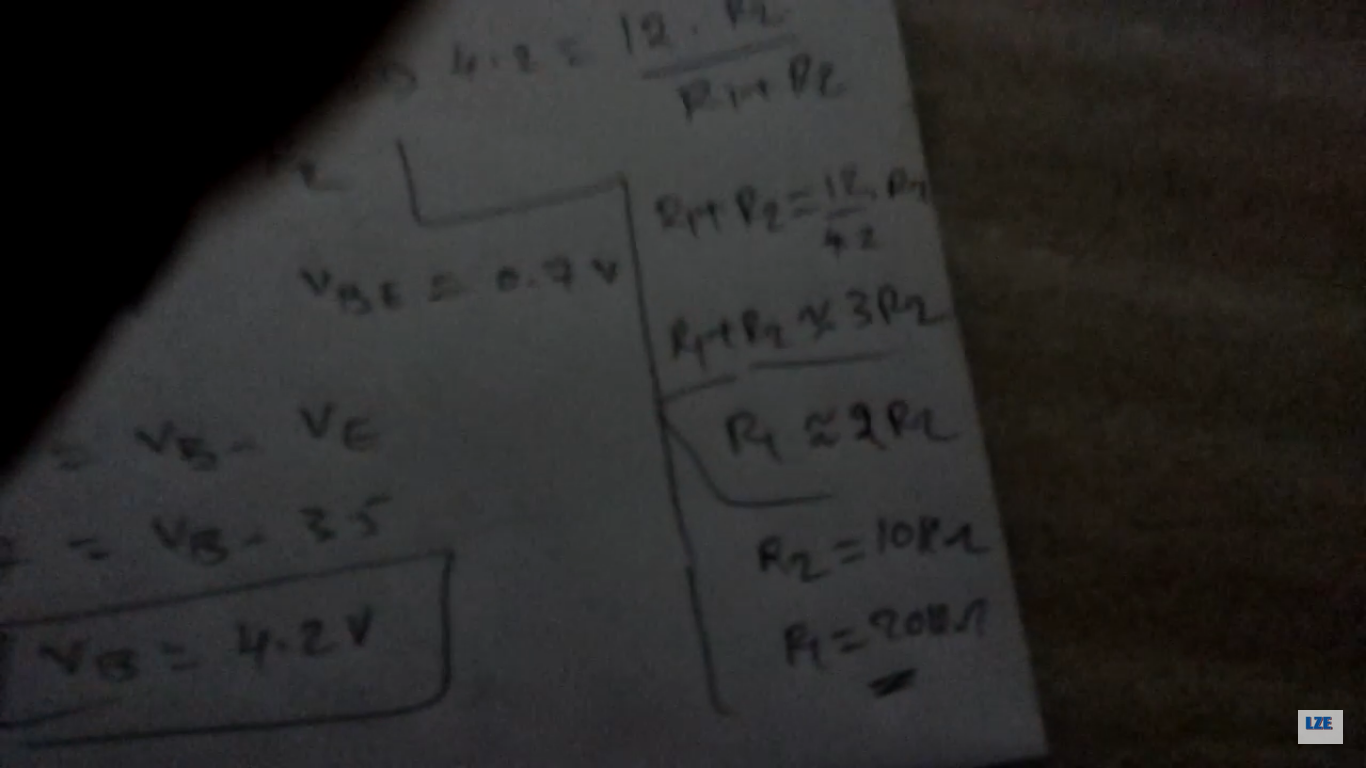 4.2 = 12 . R2
R1+R2
VBE = 0.7 V
= VB - VE
= VB - 3.5
VB = 4.2 V
R1+R2 = 12 . R2
4.2
R1+R2 ≈ 3R2
R1 ≈ 2R2
R2 = 10KΩ
R1 = 20KΩ
LZE